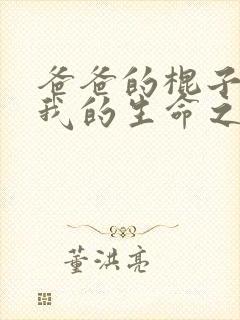 爸爸的棍子
我的生命之
董洪亮